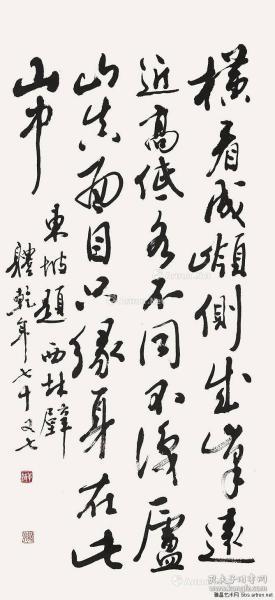 橫看成嶺側成峯遠
近高低各不同不識廬
山真面目只緣身在此
山中
東坡題西林壁
體乾年七十又七
雅昌艺术网 bbs.artron.net